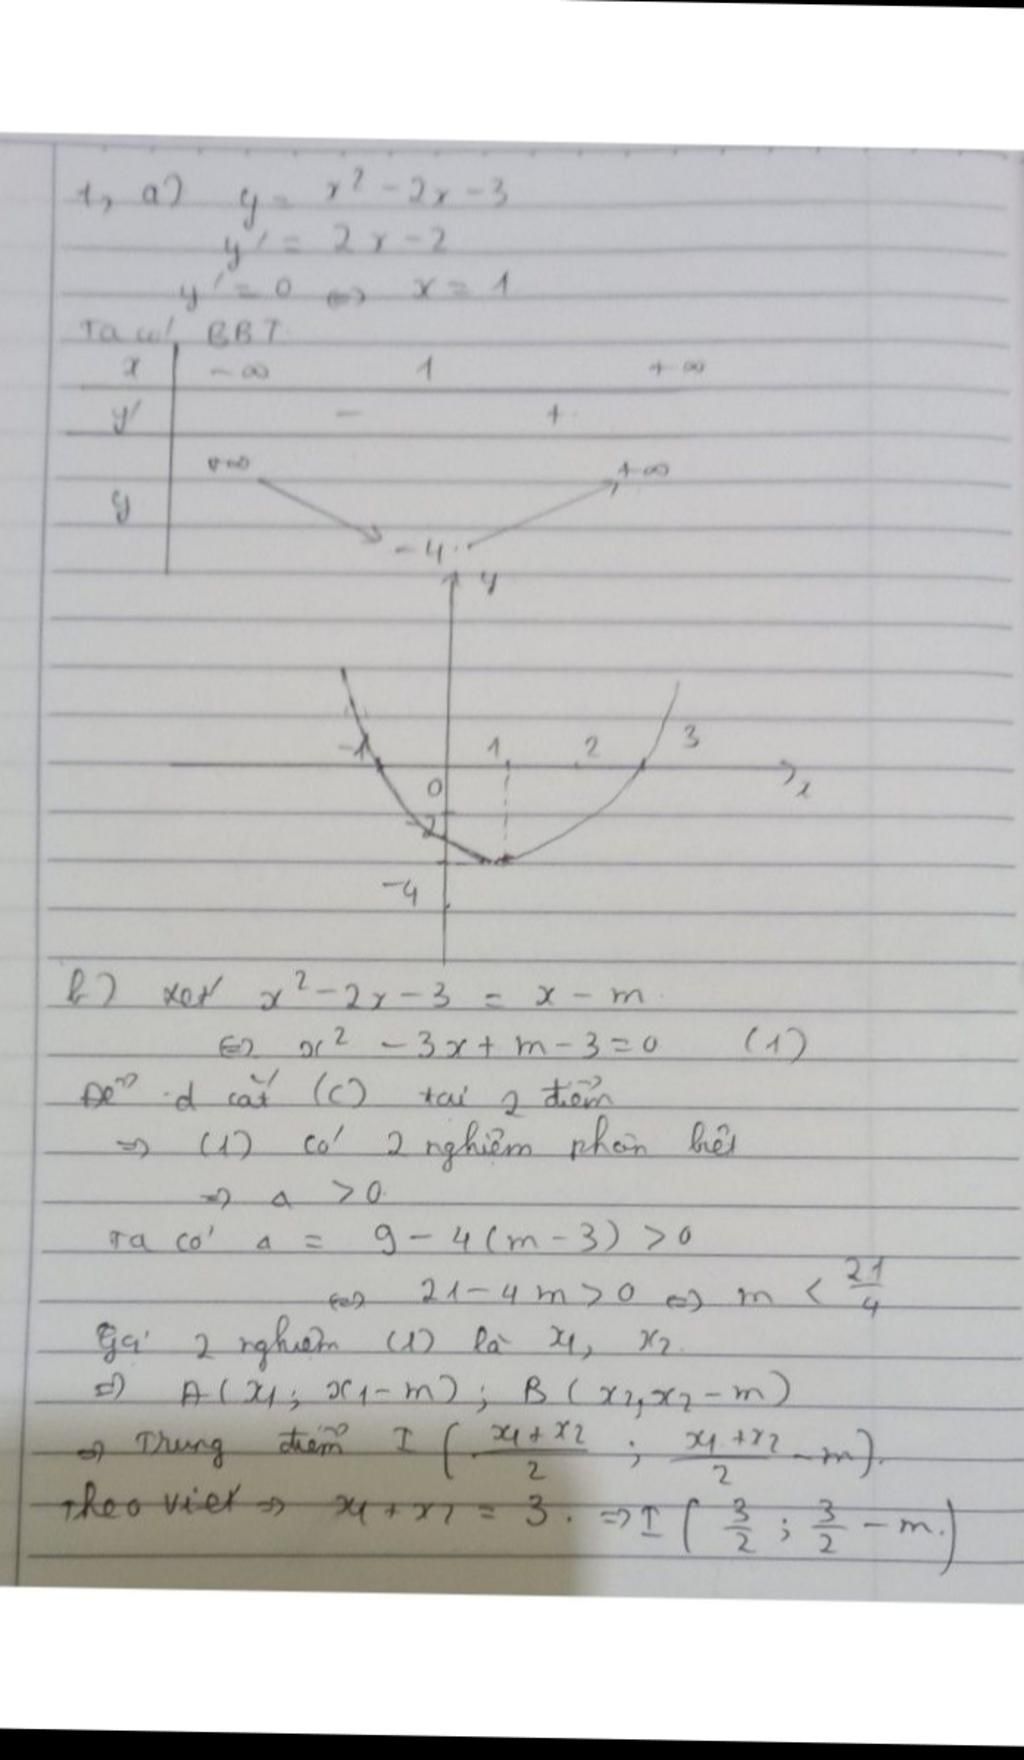 1, a) y = x² - 2x - 3
y' = 2x - 2
y' = 0 ⇔ x = 1
Ta có BBT
x -∞ 1 +∞
y' - +
+∞ +∞
y
-4
y
-1 1 2 3
0 x
-2
-4
b) xét x² - 2x - 3 = x - m
⇔ x² - 3x + m - 3 = 0 (1)
Để d cắt (C) tại 2 điểm
⇒ (1) có 2 nghiệm phân biệt
⇒ Δ > 0
Ta có Δ = 9 - 4(m - 3) > 0
⇔ 21 - 4m > 0 ⇔ m < 21/4
Gọi 2 nghiệm (1) là x₁, x₂
⇒ A(x₁; x₁ - m); B(x₂, x₂ - m)
⇒ Trung điểm I ( (x₁ + x₂)/2 ; (x₁ + x₂)/2 - m).
Theo viet ⇒ x₁ + x₂ = 3. ⇒ I ( 3/2 ; 3/2 - m.)